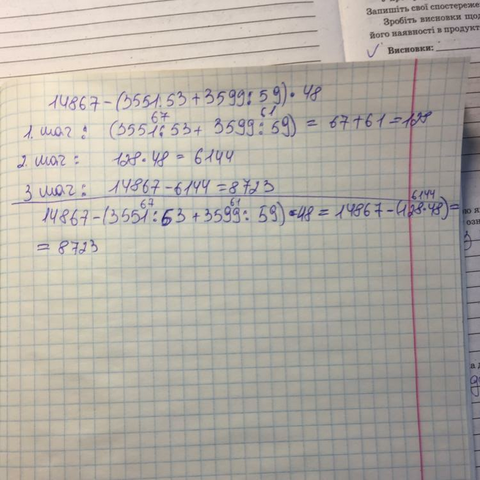 Запишіть свої спостереже
Зробіть висновки щод
його наявності в продукт
✓ Висновки:
14867-(3551:53+3599:59)·48
67 61
1. шаг: (3551:53+ 3599:59) = 67+61=128
2. шаг: 128·48=6144
3 шаг: 14867-6144=8723
67 61 6144
14867-(3551:53+3599:59)·48=14867-(128·48)=
= 8723